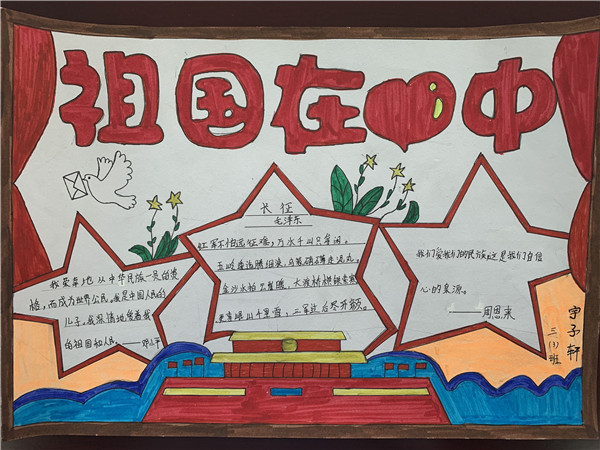 祖国在心中
我荣幸地从中华民族一员的资
格，而成为世界公民。我是中国人民的
儿子。我深情地爱着我
的祖国和人民。——邓小平
长征
毛泽东
红军不怕远征难，万水千山只等闲。
五岭逶迤腾细浪，乌蒙磅礴走泥丸。
金沙水拍云崖暖，大渡桥横铁索寒。
更喜岷山千里雪，三军过后尽开颜。
我们爱我们的民族，这是我们自信
心的泉源。
——周恩来
宇子轩
三(3)班